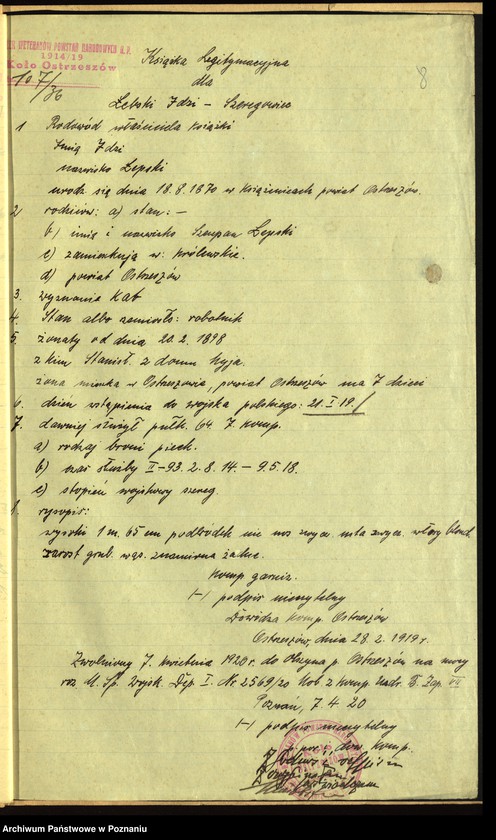 WETERANÓW POWSTAŃ NARODOWYCH R.P.
1914/19
Koło Ostrzeszów
107/36
8
Książka Legitymacyjna
dla
Lebski Idzi - Szeregowiec
1 Rodowód właściciela książki
Imię Idzi
nazwisko Lepski
urodz. się dnia 18.8.1870 w Książenicach powiat Ostrzeszów.
2 rodziców: a) stan: -
b) imię i nazwisko Szczepan Lepski
c) zamieszkują w: Królewskie.
d) powiat Ostrzeszów
3. wyznania Kat
4. Stan albo rzemiosło: robotnik
5. żonaty od dnia 20.2.1898
z kim Stanisł. z domu Hyja.
żona mieszka w Ostrzeszowie, powiat Ostrzeszów ma 7 dzieci
6. dzień wstąpienia do wojska polskiego: 21.I.19.
7. dawniej służył pułk. 64 7. komp.
a) rodzaj broni piech.
b) czas służby II-93. 2.8.14 - 9.5.18.
c) stopień wojskowy szereg.
8. rysopis:
wysoki 1 m. 65 cm podbródek nos zwycz. usta zwycz. włosy blond
zarost wąs. znamiona żadne.
Komp garniz.
(-) podpis nieczytelny
Dowódza Komp. Ostrzeszów
Ostrzeszów, dnia 28.2.1919 r.
Zwolniony 7. kwietnia 1920 r. do p. Ostrzeszów na mocy
roz. M. Sp. Wojsk. Dep I. Nr. 2569/20 z komp. Zap. VII
Poznań, 7.4 20
(-) podpis nieczytelny
dow. Komp.
Archiwum Państwowe w Poznaniu